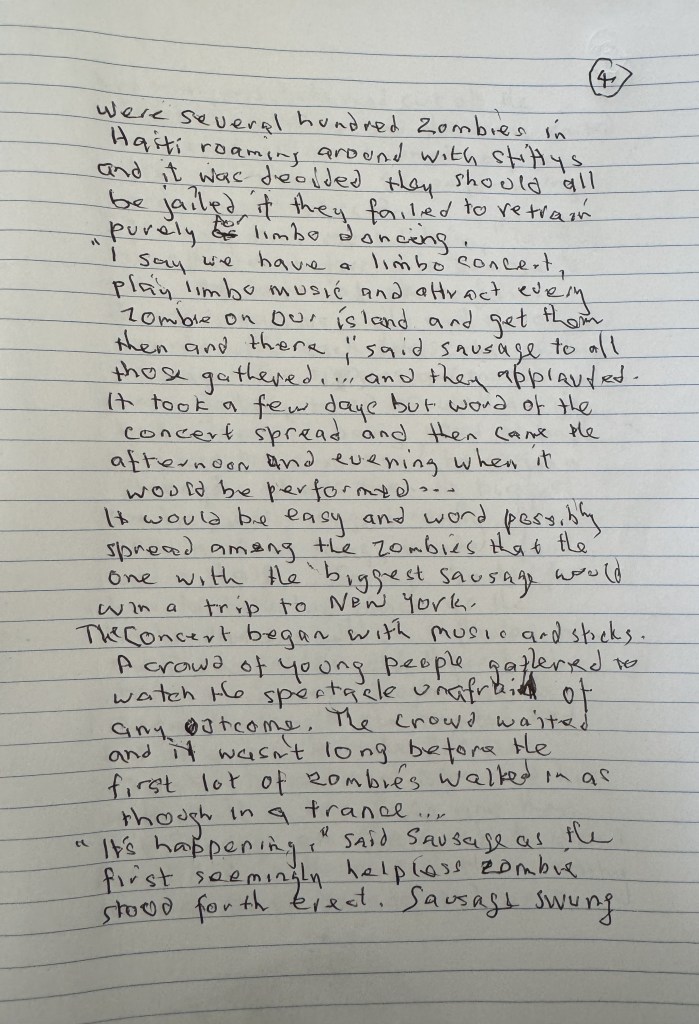 4
were several hundred zombies in
Haiti roaming around with stiffys
and it was decided they should all
be jailed if they failed to retrain
purely for limbo dancing.
"I say we have a limbo concert,
play limbo music and attract every
zombie on our island and get them
then and there," said sausage to all
those gathered.... and they applauded.
It took a few days but word of the
concert spread and then came the
afternoon and evening when it
would be performed...
It would be easy and word possibly
spread among the zombies that the
one with the biggest sausage would
win a trip to New York.
The concert began with music and sticks.
A crowd of young people gathered to
watch the spectacle unafraid of
any outcome. The crowd waited
and it wasn't long before the
first lot of zombies walked in as
though in a trance...
"It's happening," said Sausage as the
first seemingly helpless zombie
stood forth erect. Sausage swung